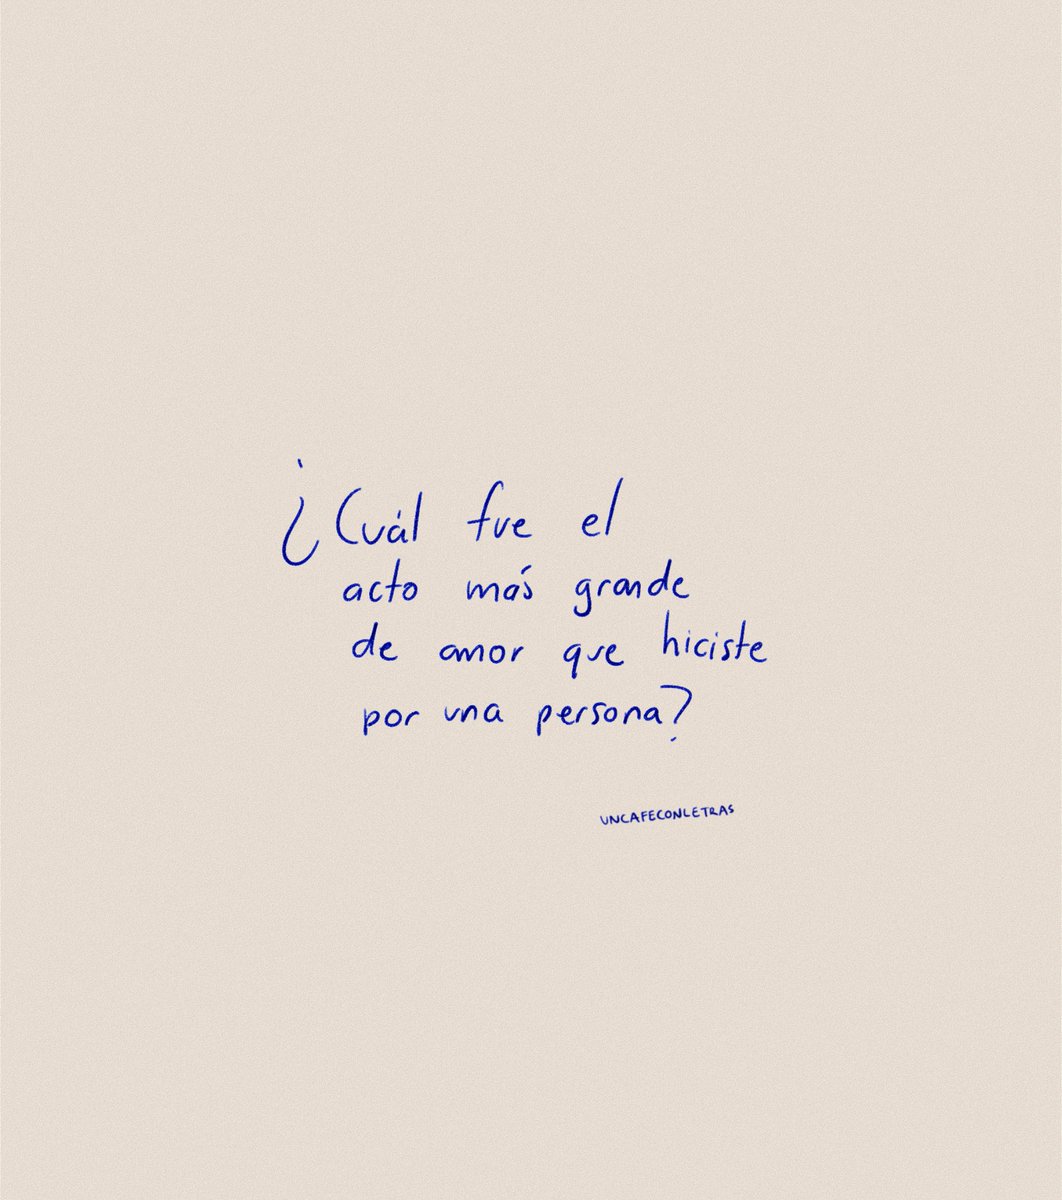 ¿Cuál fue el
acto más grande
de amor que hiciste
por una persona?
UNCAFECONLETRAS